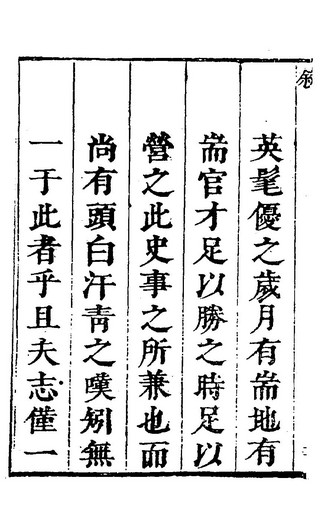 英髦優之歲月有耑地有
耑官才足以勝之時足以
營之此史事之所兼也而
尚有頭白汗靑之嘆矧無
一于此者乎且夫志僅一